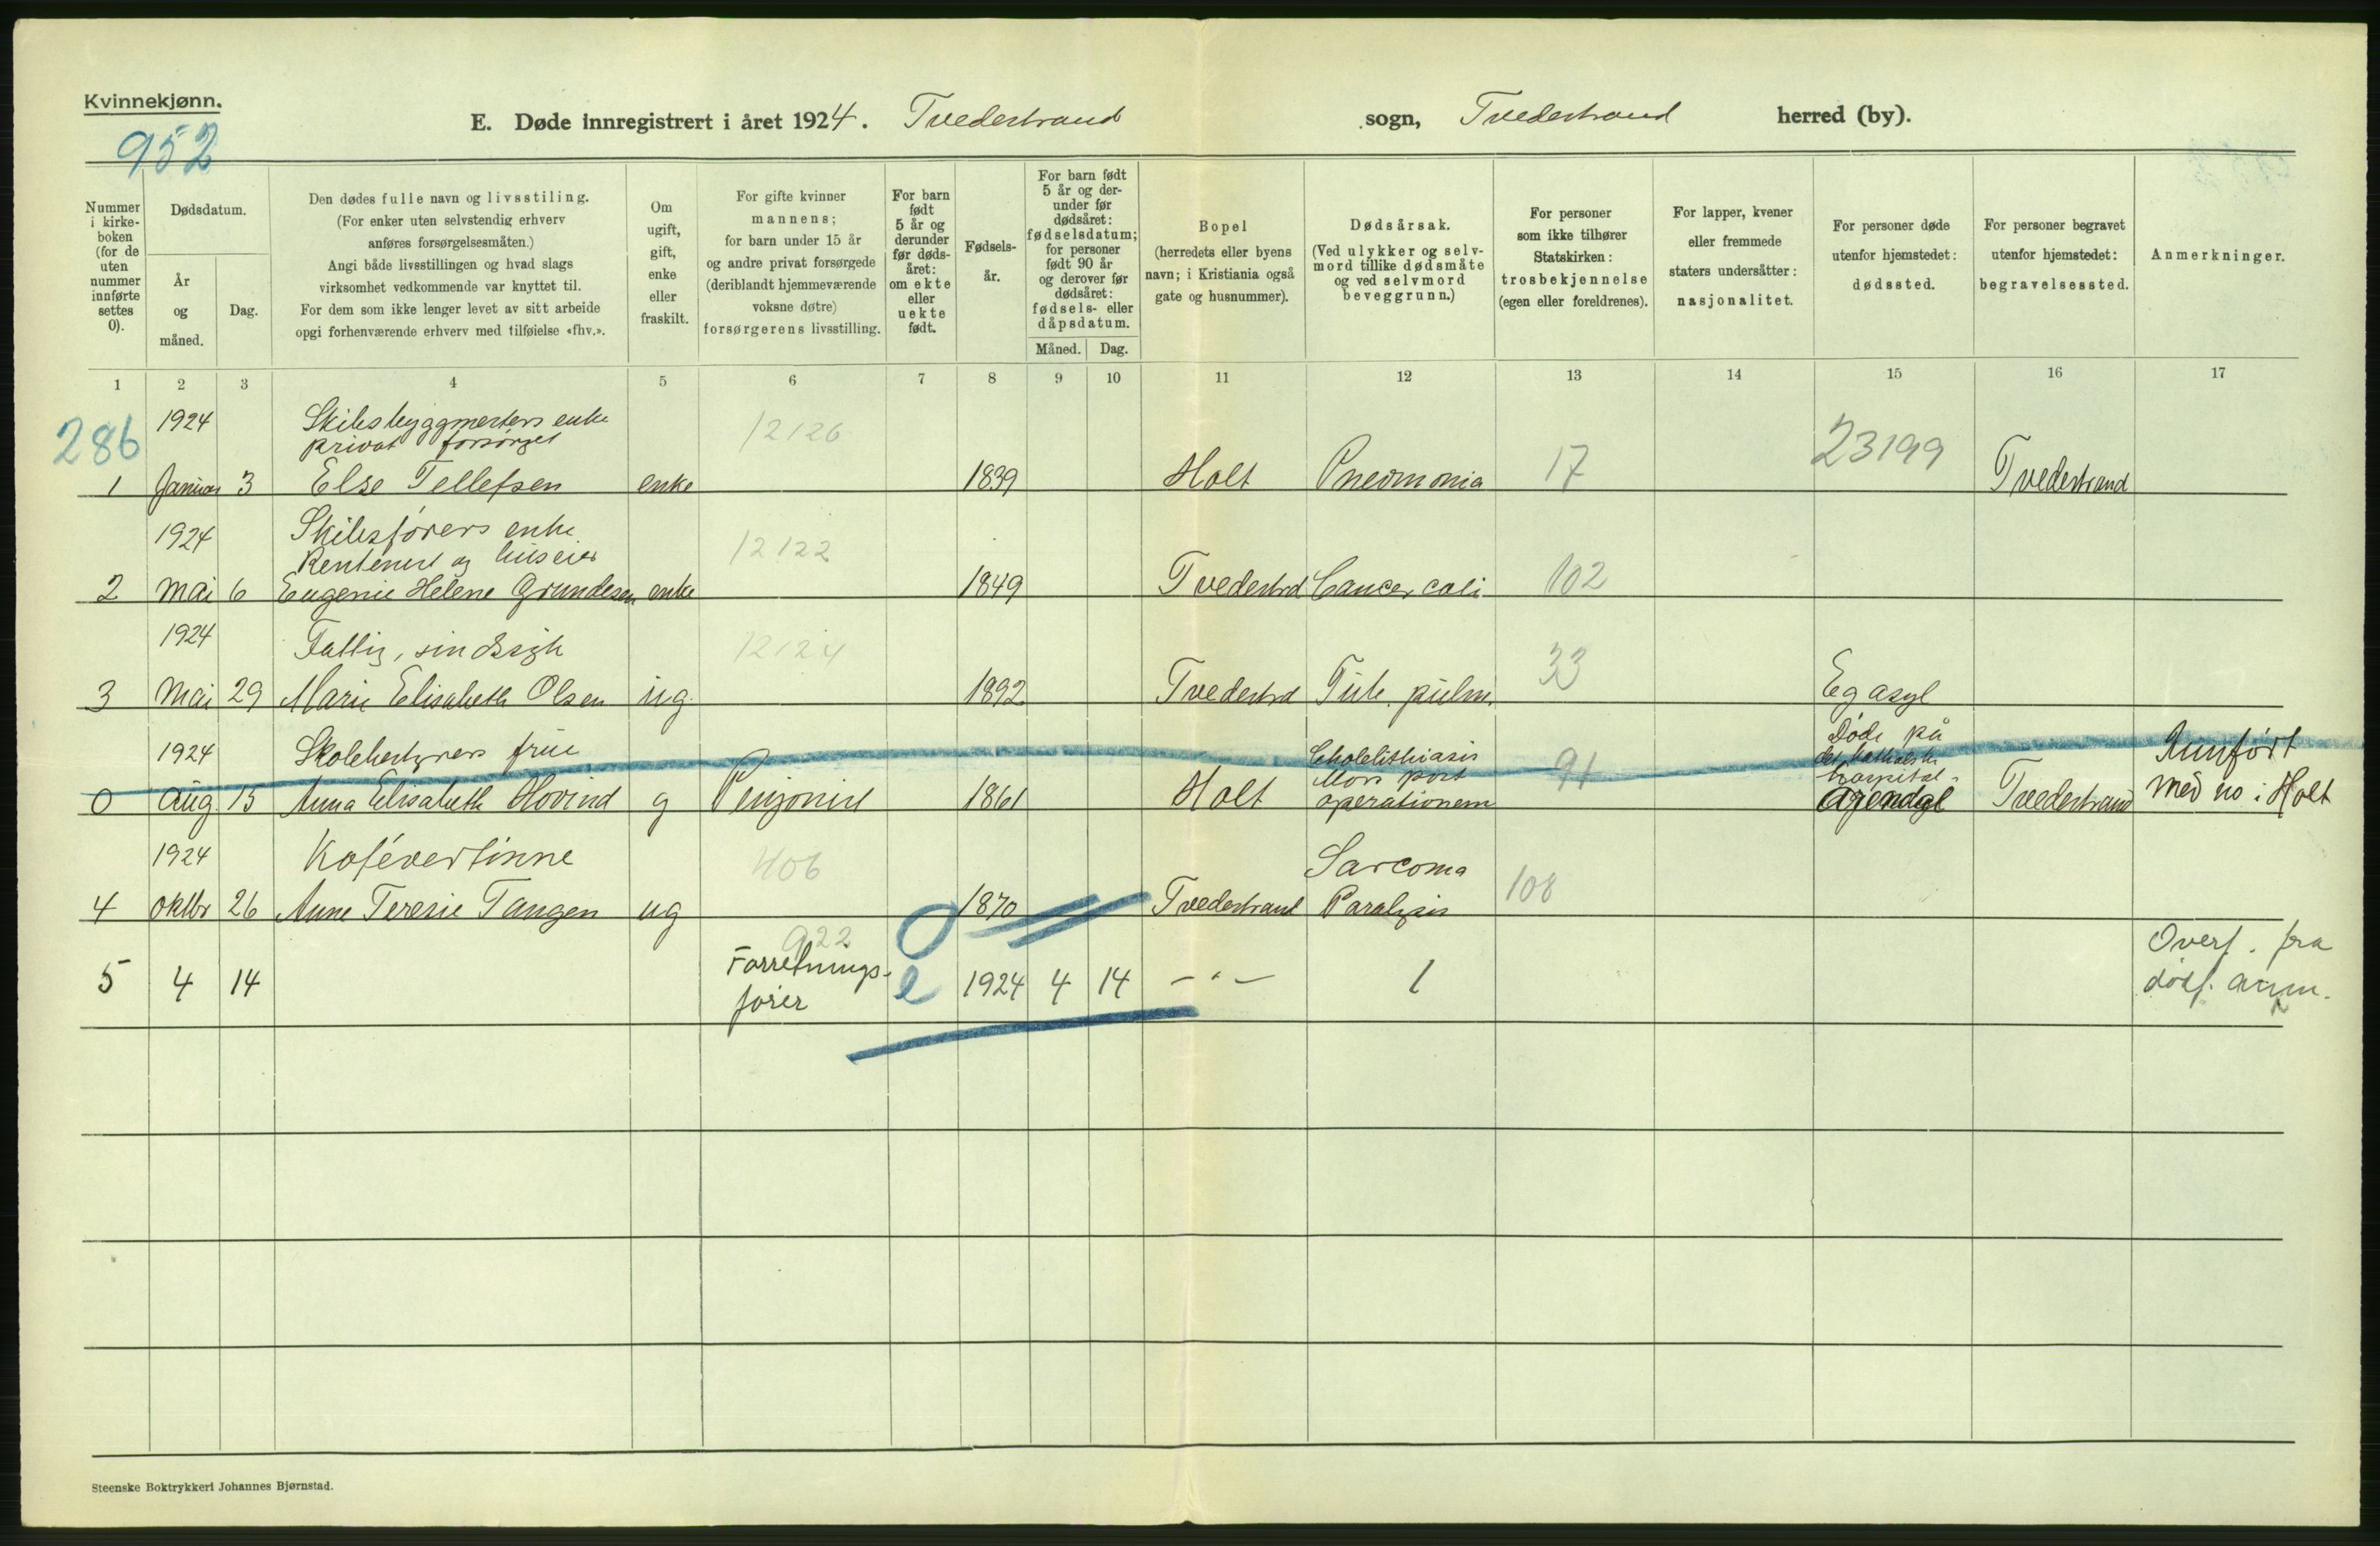 Kvinnekjønn.
952
E. Døde innregistrert i året 1924. Tvedestrand sogn, Tvedestrand herred (by).
Nummer i kirke-boken (for de uten nummer innførte settes 0).
Dødsdatum.
År og måned.
Dag.
Den dødes fulle navn og livsstiling.
(For enker uten selvstendig erhverv
anføres forsørgelsesmåten.)
Angi både livsstillingen og hvad slags
virksomhet vedkommende var knyttet til.
For dem som ikke lenger levet av sitt arbeide
opgi forhenværende erhverv med tilføielse «fhv.».
Om ugift, gift, enke eller fraskilt.
For gifte kvinner
mannens;
for barn under 15 år
og andre privat forsørgede
(deriblandt hjemmeværende
voksne døtre)
forsørgerens livsstilling.
For barn født 5 år og derunder før døds-året: om ekte eller uekte født.
Fødsels-år.
For barn født
5 år og der-
under før
dødsåret:
fødselsdatum;
for personer
født 90 år
og derover før
dødsåret:
fødsels- eller
dåpsdatum.
Måned. Dag.
Bopel
(herredets eller byens
navn; i Kristiania også
gate og husnummer).
Dødsårsak.
(Ved ulykker og selv-
mord tillike dødsmåte
og ved selvmord
beveggrunn.)
For personer
som ikke tilhører
Statskirken:
trosbekjennelse
(egen eller foreldrenes).
For lapper, kvener
eller fremmede
staters undersåtter:
nasjonalitet.
For personer døde
utenfor hjemstedet:
dødssted.
For personer begravet
utenfor hjemstedet:
begravelsessted.
Anmerkninger.
1 2 3 4 5 6 7 8 9 10 11 12 13 14 15 16 17
286 1924 Skibsbyggmesters enke 12126 23199
privat forsørget
1 Januar 3 Else Tellefsen enke 1839 Holt Pneumonia 17 Tvedestrand
1924 Skibsførers enke 12122
Rentenist og huseier
2 Mai 6 Eugenie Helene Grundesen enke 1849 Tvedestrd Cancer coli 102
1924 Fattig, sindssyk 12124
3 Mai 29 Marie Elisabeth Olsen ug. 1892 Tvedestrd Tub. pulm. 33 Eg asyl
1924 Skolebestyrers frue Cholelithiasis Døde på Anmført
Mors post det katholske hospital
0 Aug. 15 Anna Elisabeth Hovind g Pensjonist 1861 Holt operationem 91 Arendal Tvedestrand med no i Holt
1924 Kafévertinne 406 Sarcoma
4 oktbr 26 Anne Teresie Tangen ug 1870 Tvedestrand Paralysis 108
922 Overf. fra
5 4 14 Forretnings- e 1924 4 14 —"— 1 dødf. anm.
fører
Steenske Boktrykkeri Johannes Bjørnstad.